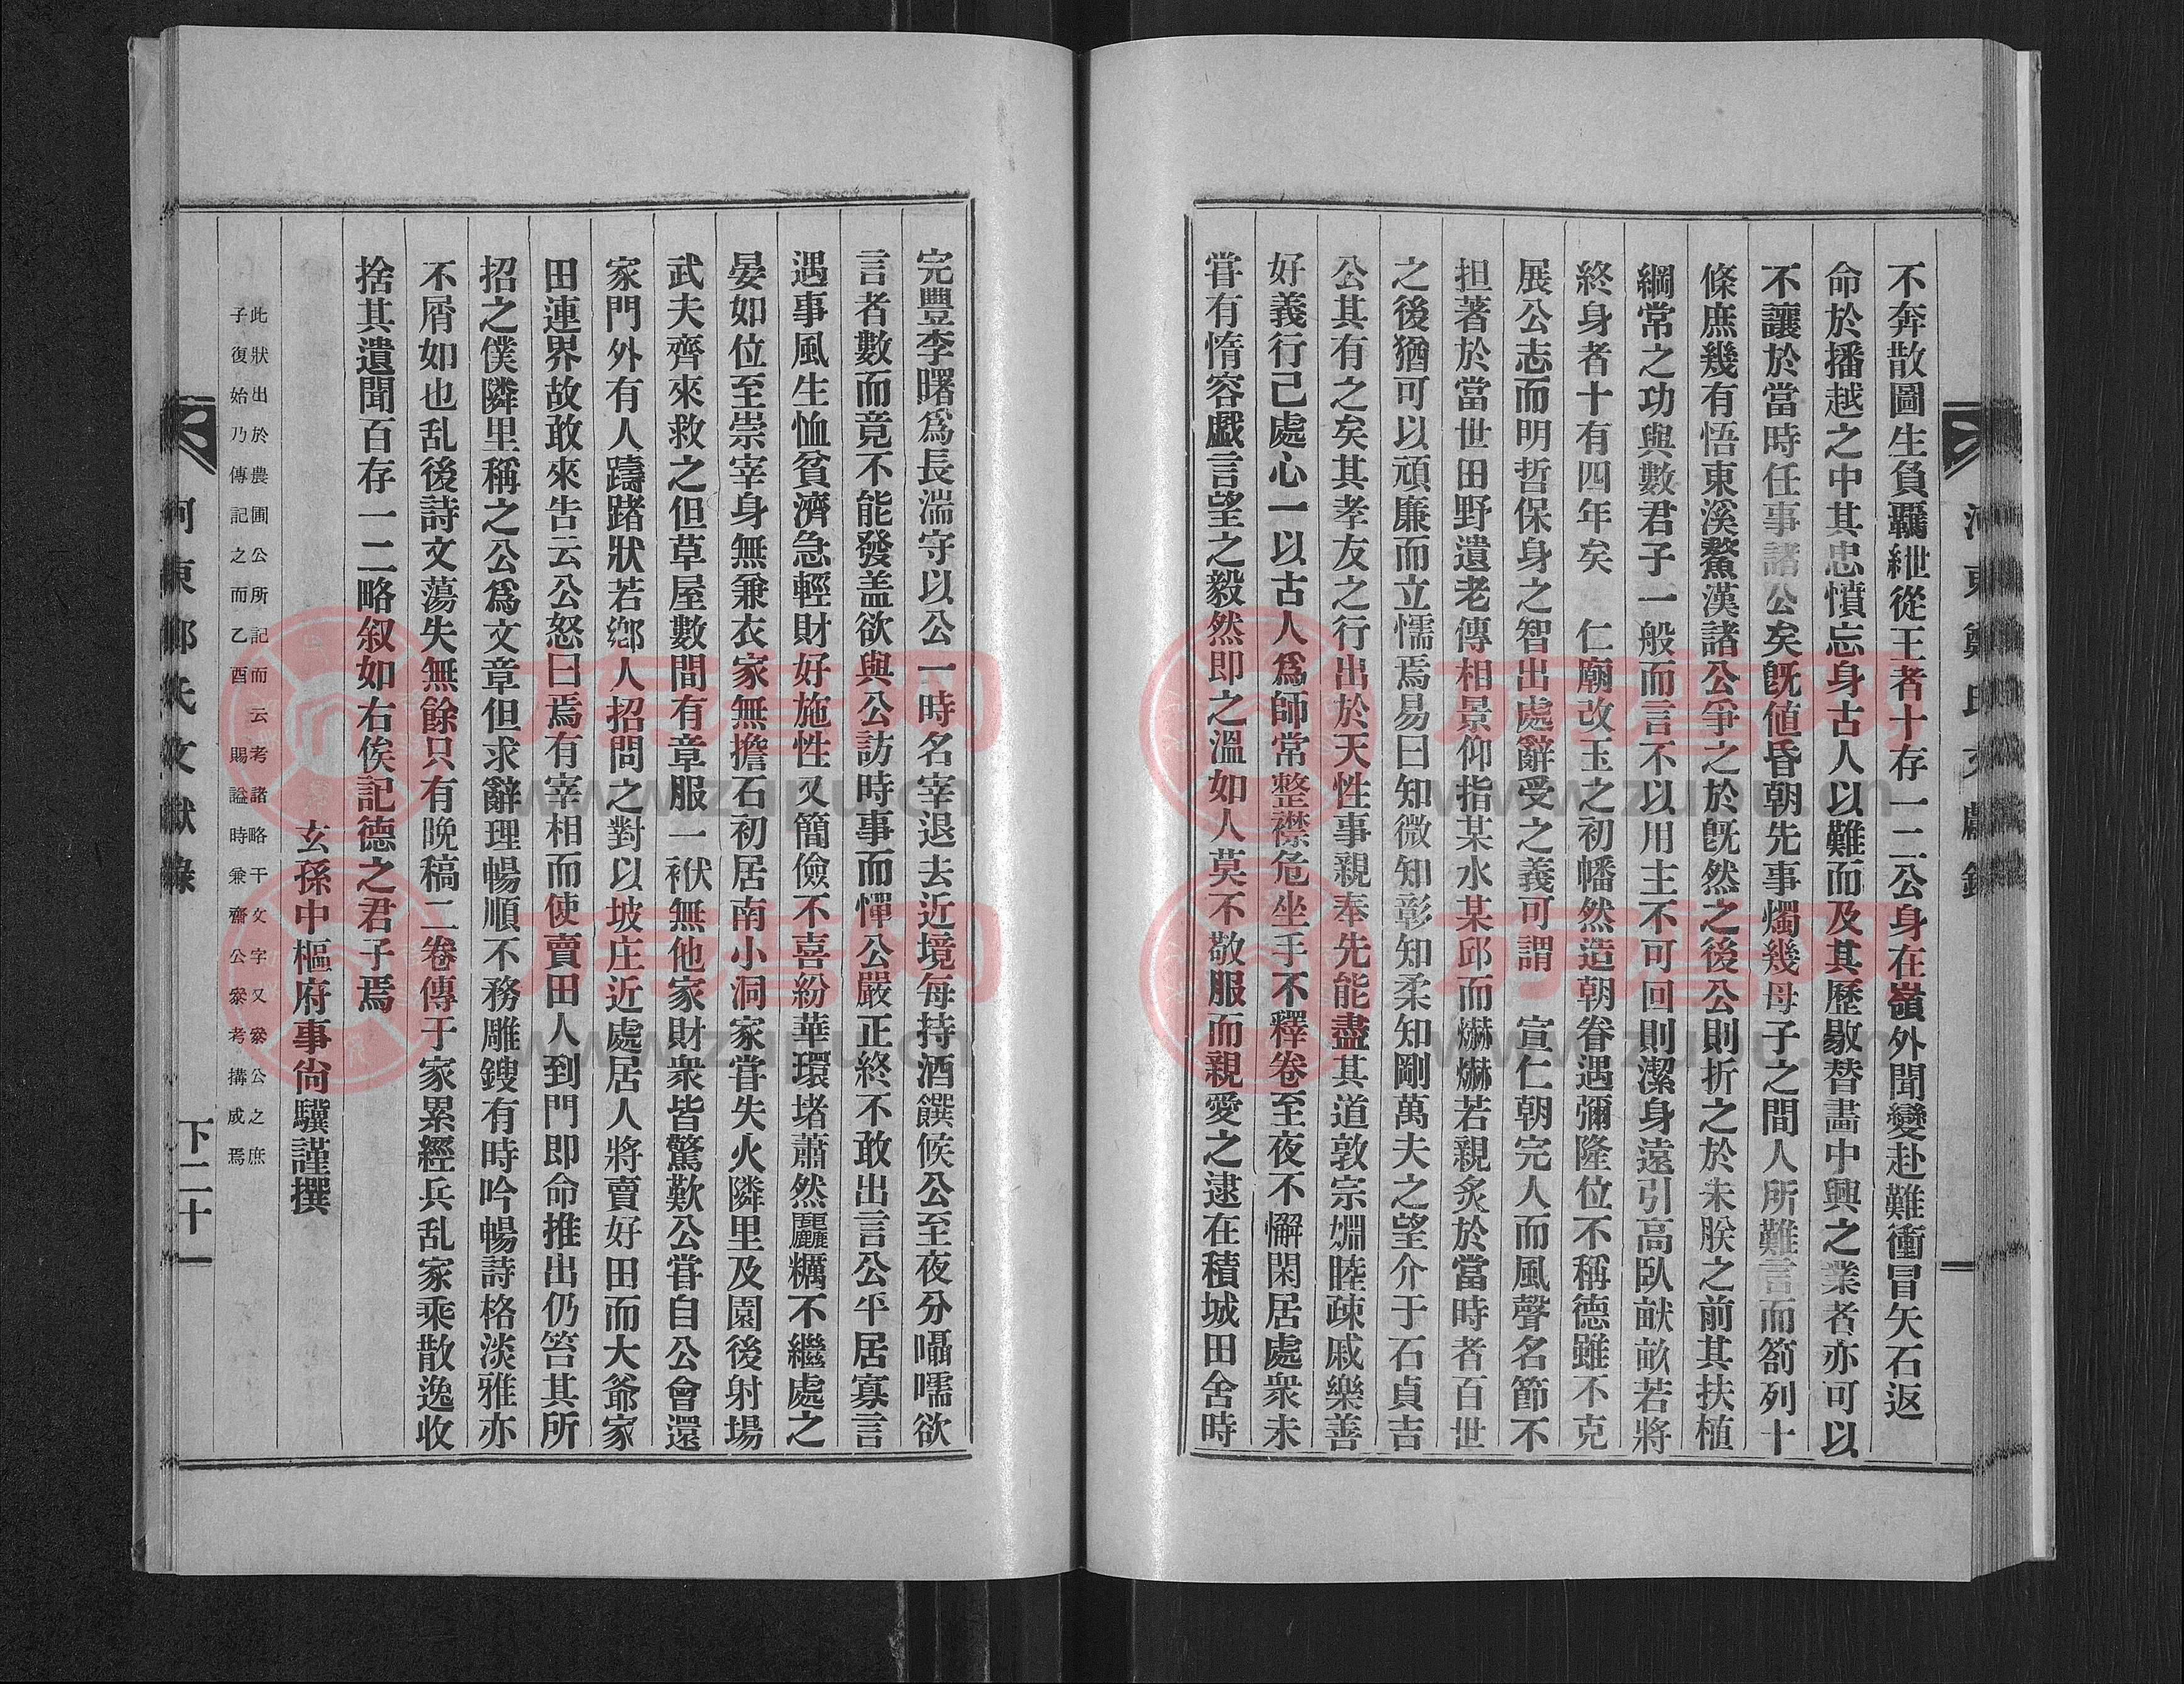 不奔散圖生負羈紲從王者十存一二公身在嶺外聞變赴難衝冒矢石返
命於播越之中其忠憤忘身古人以難而及其歷敭替畫中興之業者亦可以
不讓於當時任事諸公矣既値昏朝先事燭幾母子之間人所難言而箚列十
條庶幾有悟東溪鰲漢諸公爭之於既然之後公則折之於未朕之前其扶植
綱常之功與數君子一般而言不以用主不可回則潔身遠引高臥畎畝若將
終身者十有四年矣 仁廟改玉之初幡然造朝眷遇彌隆位不稱德雖不克
展公志而明哲保身之智出處辭受之義可謂 宣仁朝完人而風聲名節不
担著於當世田野遺老傳相景仰指某水某邱而爀爀若親炙於當時者百世
之後猶可以頑廉而立懦焉易曰知微知彰知柔知剛萬夫之望介于石貞吉
公其有之矣其孝友之行出於天性事親奉先能盡其道敦宗婣睦疎戚樂善
好義行己處心一以古人爲師常整襟危坐手不釋卷至夜不懈閑居處衆未
甞有惰容戱言望之毅然即之溫如人莫不敬服而親愛之逮在積城田舍時
河東鄭氏文獻錄
完豐李曙爲長湍守以公一時名宰退去近境每持酒饌候公至夜分囁嚅欲
言者數而竟不能發盖欲與公訪時事而憚公嚴正終不敢出言公平居寡言
遇事風生恤貧濟急輕財好施性又簡儉不喜紛華環堵蕭然麤糲不繼處之
晏如位至崇宰身無兼衣家無擔石初居南小洞家甞失火隣里及園後射場
武夫齊來救之但草屋數間有章服一袱無他家財衆皆驚歎公甞自公會還
家門外有人躊躇狀若鄕人招問之對以坡庄近處居人將賣好田而大爺家
田連界故敢來告云公怒曰焉有宰相而使賣田人到門即命推出仍笞其所
招之僕隣里稱之公爲文章但求辭理暢順不務雕鎪有時吟暢詩格淡雅亦
不屑如也乱後詩文蕩失無餘只有晩稿二卷傳于家累經兵乱家乘散逸收
捨其遺聞百存一二略叙如右俟記德之君子焉
玄孫中樞府事尙驥謹撰
此狀出於農圃公所記而云考諸略干文字又叅公之庶
子復始乃傳記之而乙酉 賜謚時兼齋公叅考搆成焉
河東鄭氏文獻錄
下二十一